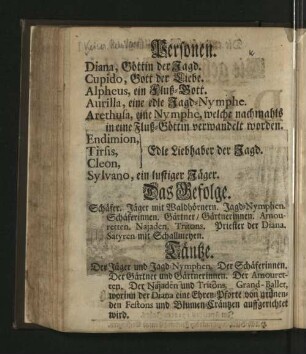 Personen.
Diana, Göttin der Jagd.
Cupido, Gott der Liebe.
Alpheus, ein Fluß-Gott.
Aurilla, eine edle Jagd-Nymphe.
Arethusa, eine Nymphe, welche nachmahls
in eine Fluß-Göttin verwandelt worden.
Endimion,
Tirsis, Edle Liebhaber der Jagd.
Cleon,
Sylvano, ein lustiger Jäger.
Das Gefolge.
Schäfer. Jäger mit Waldhörnern. Jagd-Nymphen.
Schäferinnen. Gärtner, Gärtnerinnen. Amou-
retten. Najaden. Tritons. Priester der Diana.
Satyren mit Schallmeyen.
Täntze.
Der Jäger und Jagd-Nymphen. Der Schäferinnen.
Der Gärtner und Gärtnerinnen. Der Amouret-
ten. Der Najaden und Tritons. Grand-Ballet,
worinn der Diana eine Ehren-Pforte von grünen-
den Festons und Blumen-Kräntzen auffgerichtet
wird.